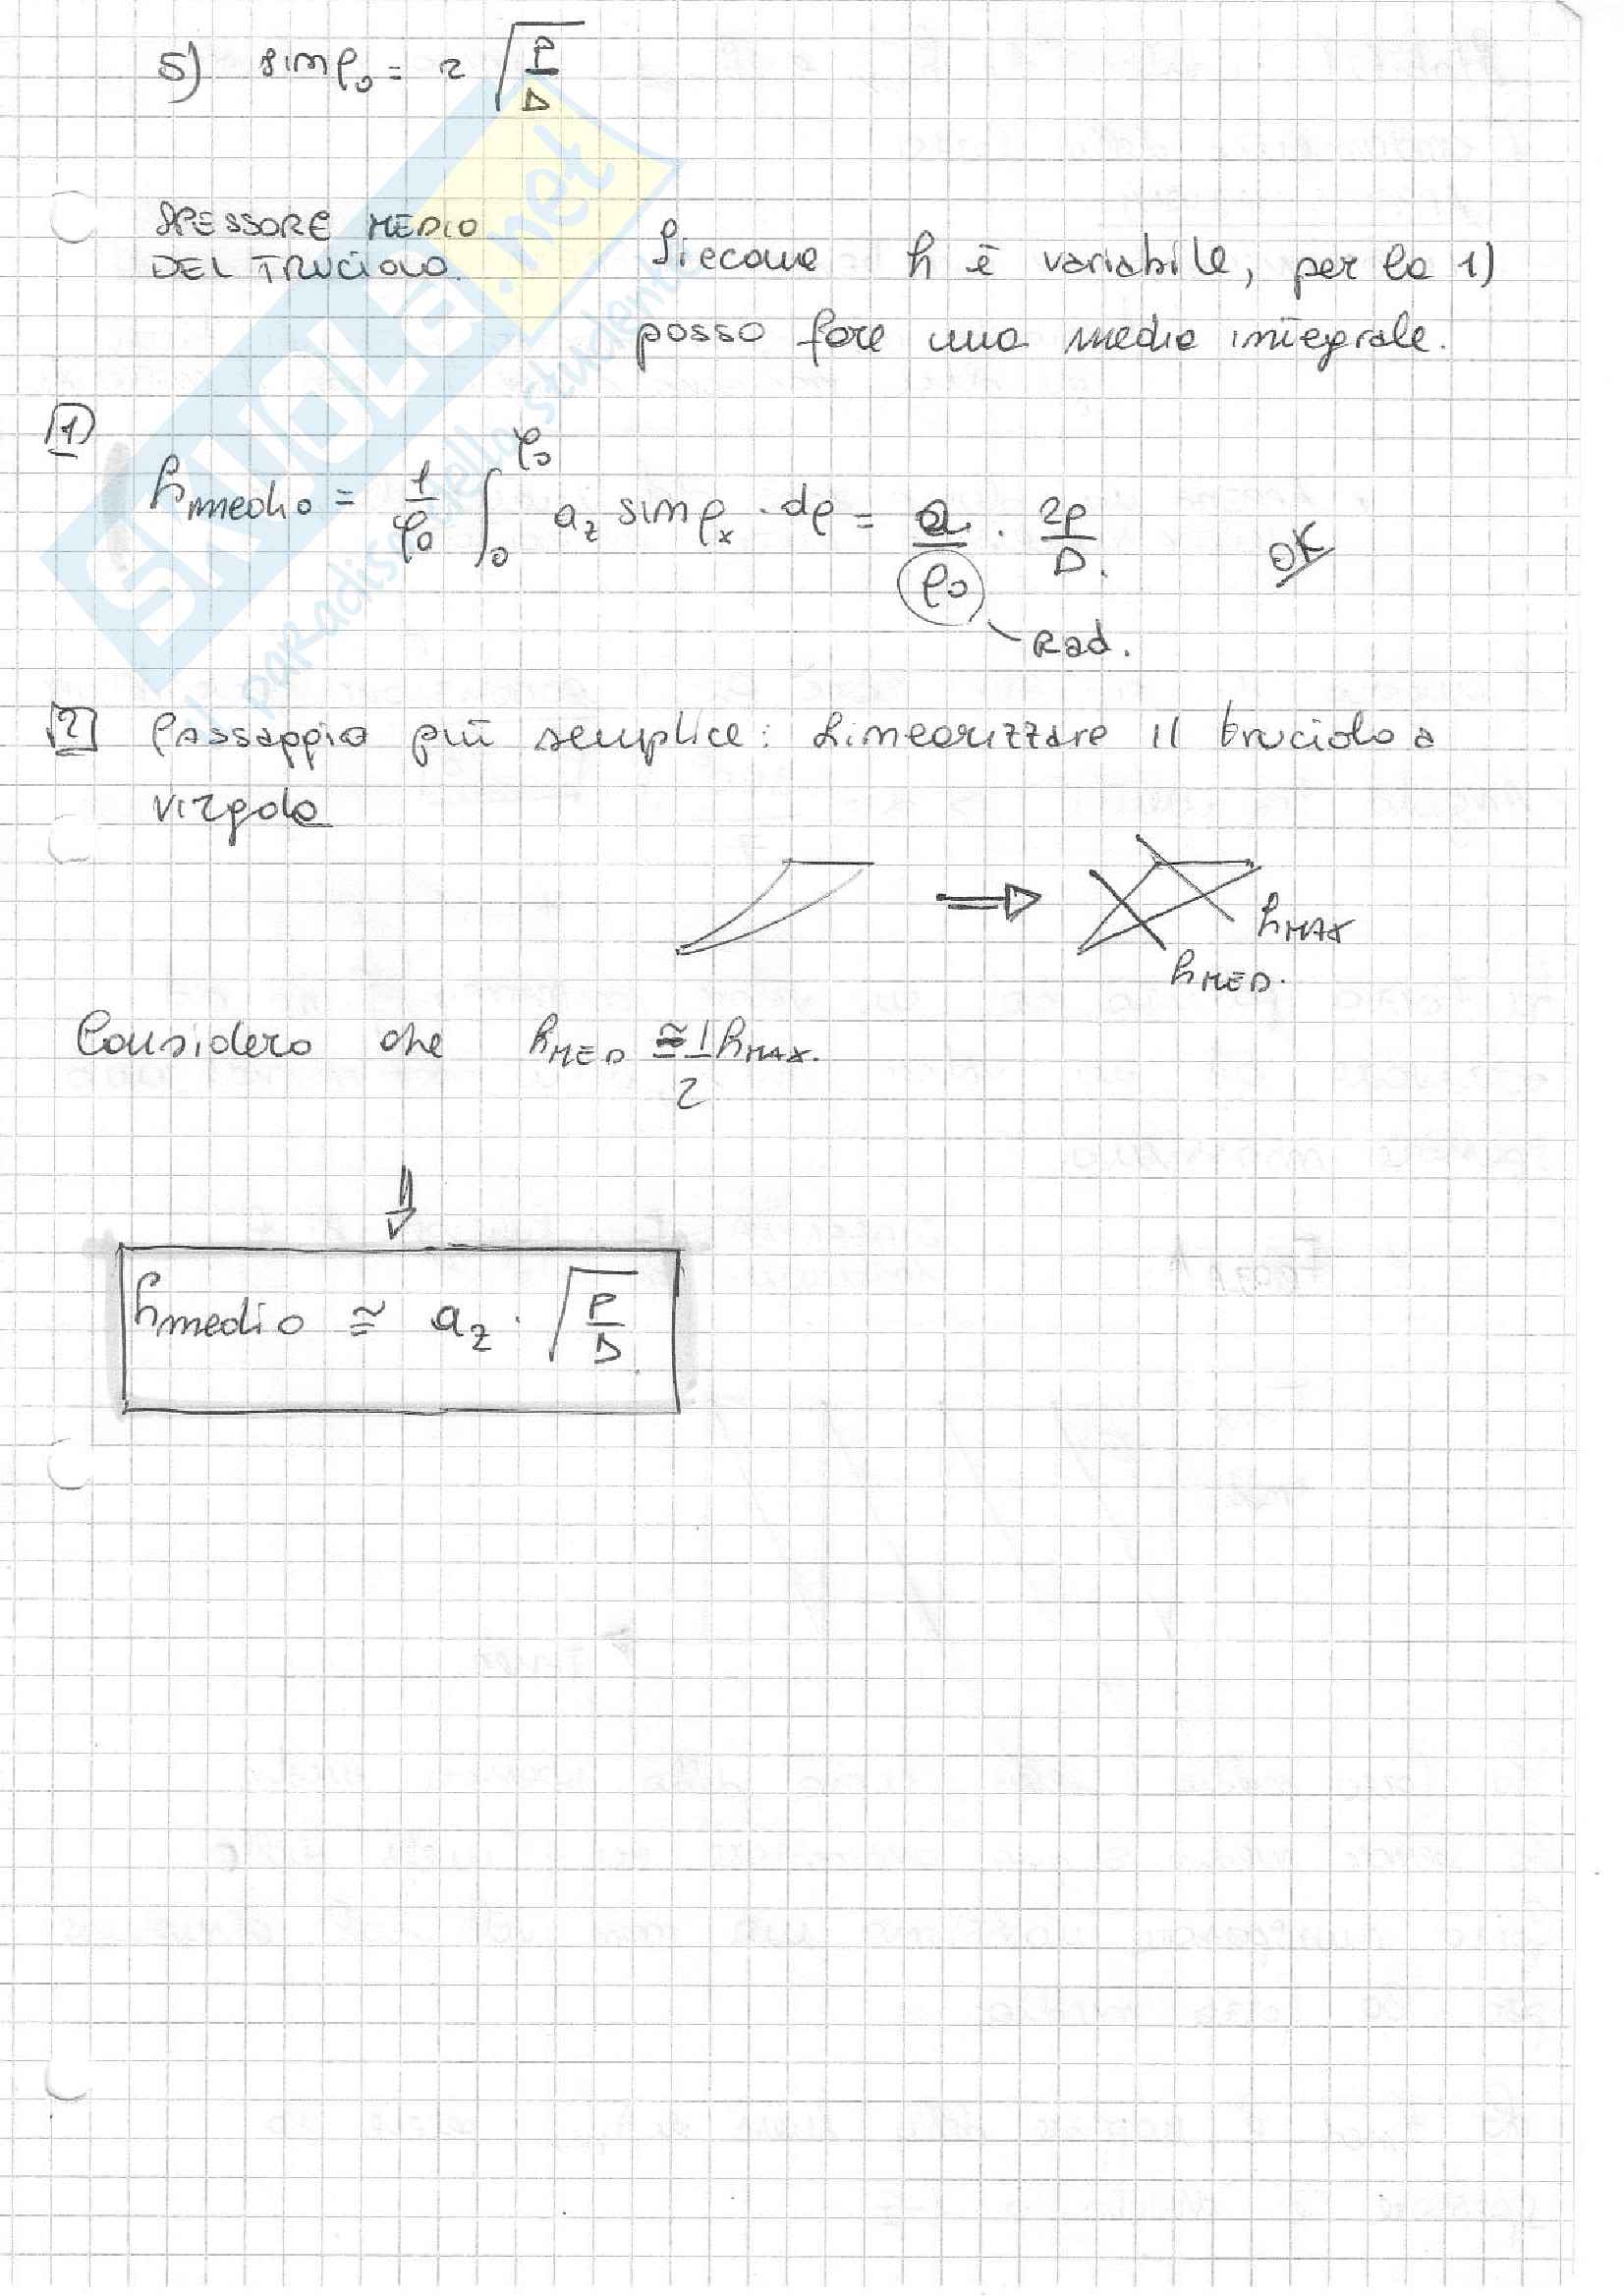 5) sinφ₀ = 2 √(P/D)
SPESSORE MEDIO
DEL TRUCIOLO.
Siccome h è variabile, per la 1)
posso fare una media integrale.
1
hmedio = 1/φ₀ ∫₀^φ₀ a_z sinφ_x · dφ = a/φ₀ · 2P/D. OK
Rad.
2 Passaggio più semplice: Linearizzare il truciolo a
virgola
hMAX
hMED.
Considero che hMED ≅ 1/2 hMAX.
hmedio ≅ a_z · √(P/D)
SKUOLA.net
il paradiso dello studente